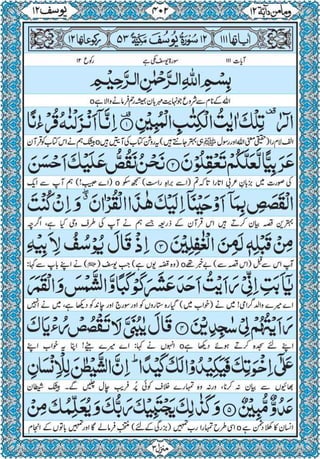 یوسف ۱۲ ۴۰۲ ومامن دآبة ۱۲
رکوعاتها ۱۲ ۱۲ سُوْرَةُ يُوْسُفَ مَكِّيَّةٌ ۵۳ اٰیاتها ۱۱۱
رکوع ۱۲ سورۃ یوسف مکی ہے آیات ۱۱۱
بِسْمِ اللّٰهِ الرَّحْمٰنِ الرَّحِيْمِ
اللہ کے نام سے شروع جو نہایت مہربان ہمیشہ رحم فرمانے والا ہے
الٓرٰ ۚ تِلْكَ اٰيٰتُ الْكِتٰبِ الْمُبِيْنِ ۝۱ اِنَّاۤ اَنْزَلْنٰهُ قُرْءٰنًا
الف لام را (حقیقی معنی اللہ اور رسول ﷺ ہی بہتر جانتے ہیں)، یہ روشن کتاب کی آیتیں ہیں۝ بیشک ہم نے اس کتاب کو قرآن
عَرَبِيًّا لَّعَلَّكُمْ تَعْقِلُوْنَ ۝۲ نَحْنُ نَقُصُّ عَلَيْكَ اَحْسَنَ
کی صورت میں بزبانِ عربی اتارا تاکہ تم (اسے براہِ راست) سمجھ سکو۝ (اے حبیب!) ہم آپ سے ایک
الْقَصَصِ بِمَاۤ اَوْحَيْنَاۤ اِلَيْكَ هٰذَا الْقُرْاٰنَ ۖ وَ اِنْ كُنْتَ
بہترین قصہ بیان کرتے ہیں اس قرآن کے ذریعہ جسے ہم نے آپ کی طرف وحی کیا ہے، اگرچہ
مِنْ قَبْلِهٖ لَمِنَ الْغٰفِلِيْنَ ۝۳ اِذْ قَالَ يُوْسُفُ لِاَبِيْهِ
آپ اس سے قبل (اس قصہ سے) بے خبر تھے۝ (وہ قصہ یوں ہے) جب یوسف (علیہ السلام) نے اپنے باپ سے کہا:
يٰۤاَبَتِ اِنِّيْ رَاَيْتُ اَحَدَ عَشَرَ كَوْكَبًا وَّ الشَّمْسَ وَ الْقَمَرَ
اے میرے والد گرامی! میں نے (خواب میں) گیارہ ستاروں کو اور سورج اور چاند کو دیکھا ہے، میں نے انہیں
رَاَيْتُهُمْ لِيْ سٰجِدِيْنَ ۝۴ قَالَ يٰبُنَيَّ لَا تَقْصُصْ رُءْيَاكَ
اپنے لئے سجدہ کرتے ہوئے دیکھا ہے۝ انہوں نے کہا: اے میرے بیٹے! اپنا یہ خواب اپنے
عَلٰۤى اِخْوَتِكَ فَيَكِيْدُوْا لَكَ كَيْدًا ؕ اِنَّ الشَّيْطٰنَ لِلْاِنْسَانِ
بھائیوں سے بیان نہ کرنا، ورنہ وہ تمہارے خلاف کوئی پُر فریب چال چلیں گے۔ بیشک شیطان
عَدُوٌّ مُّبِيْنٌ ۝۵ وَ كَذٰلِكَ يَجْتَبِيْكَ رَبُّكَ وَ يُعَلِّمُكَ مِنْ
انسان کا کھلا دشمن ہے۝ اسی طرح تمہارا رب تمہیں (بزرگی کے لئے) منتخب فرما لے گا اور تمہیں باتوں کے انجام
منزل ۳